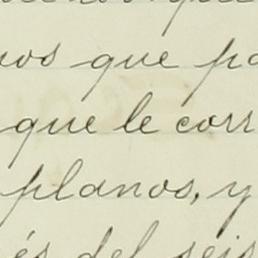 que
nos que pa
que le corr
planos, y
és del seis